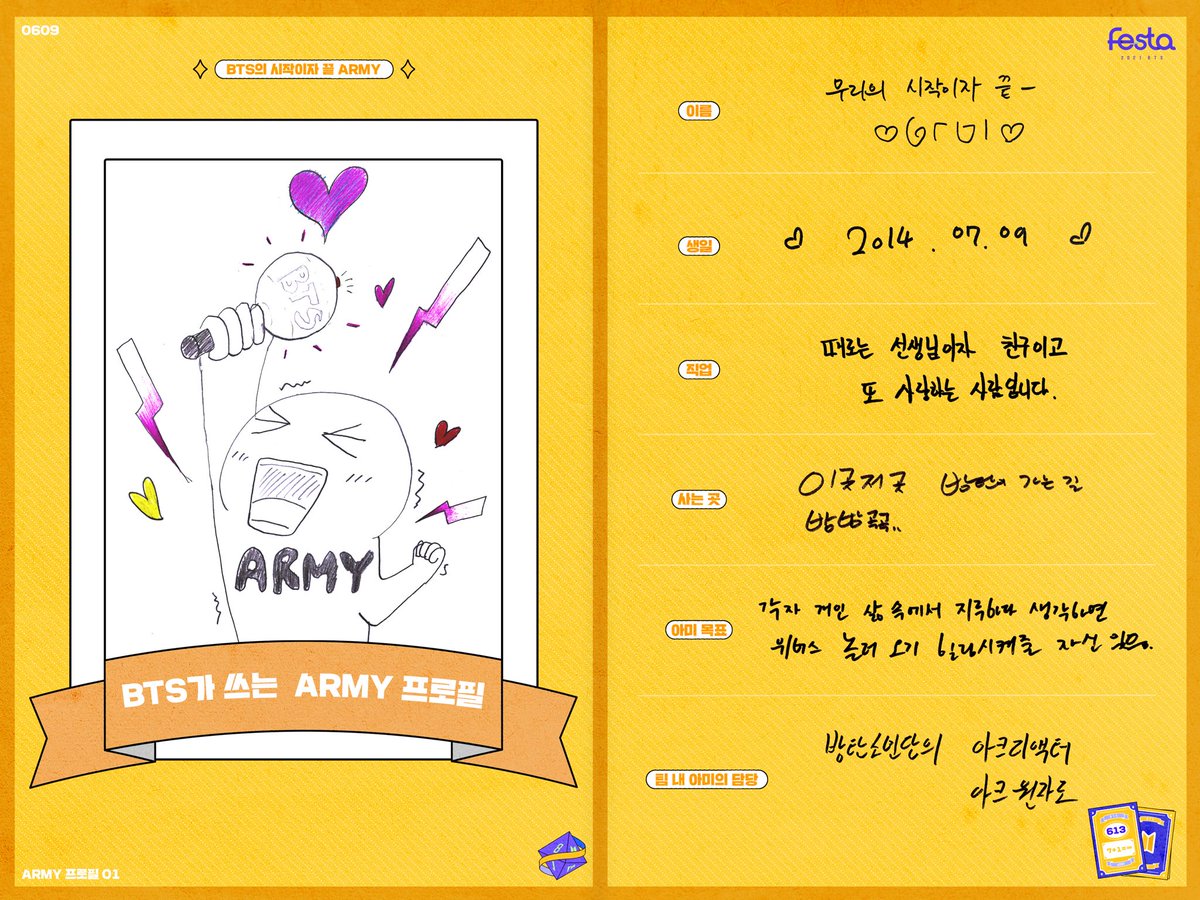 0609
BTS의 시작이자 끝 ARMY
BTS
ARMY
BTS가 쓰는 ARMY 프로필
ARMY 프로필 01
festa
2021 BTS
이름
우리의 시작이자 끝 –
생일
2014 . 07. 09
직업
때로는 선생님이자 친구이고
또 사랑하는 사람입니다.
사는 곳
이곳저곳 가는 길
방방곡곡..
아미 목표
각자 개인 삶 속에서 지루하다 생각하면
위버스 놀러 오기 힐링시켜줄 자신 있음.
팀 내 아미의 담당
방탄소년단의 아크리액터
아크 원자로
613